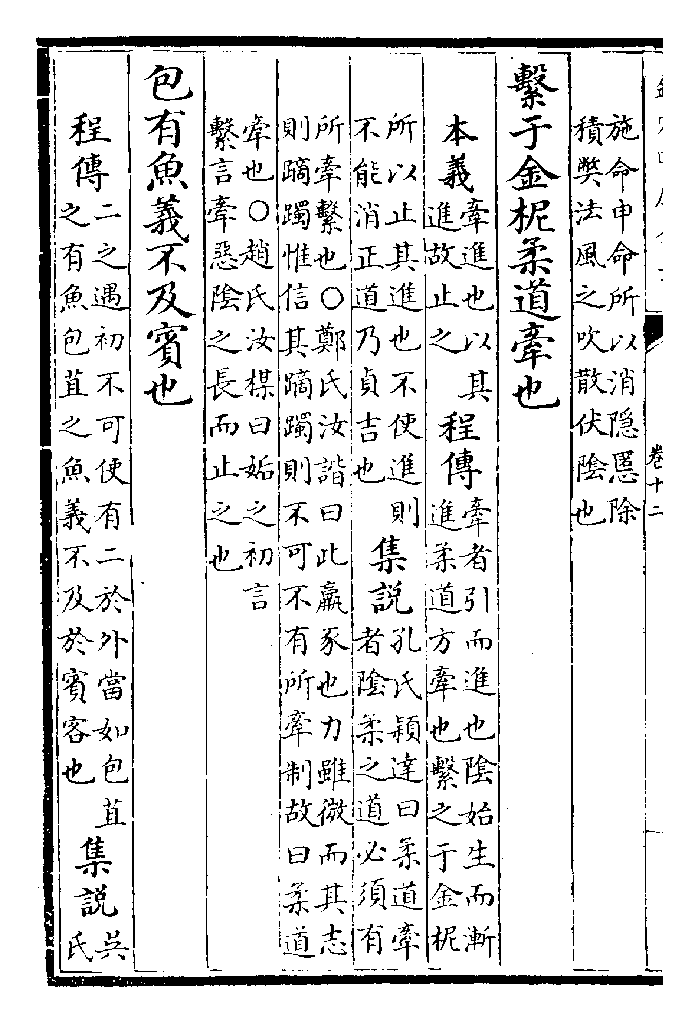 卷十二
施命申命所以消隱慝除
積獘法風之吹散伏陰也
繫于金柅柔道牽也
本義
牽進也以其
進故止之
程傳
牽者引而進也陰始生而漸
進柔道方牽也繫之于金柅
所以止其進也不使進則
不能消正道乃貞吉也
集説
孔氏穎達曰柔道牽
者陰柔之道必須有
所牽繫也○鄭氏汝諧曰此羸豕也力雖微而其志
則蹢躅惟信其蹢躅則不可不有所牽制故曰柔道
牽也○趙氏汝楳曰姤之初言
繫言牽惡陰之長而止之也
包有魚義不及賓也
程傳
二之遇初不可使有二於外當如包苴
之有魚包苴之魚義不及於賓客也
集説
吳
氏